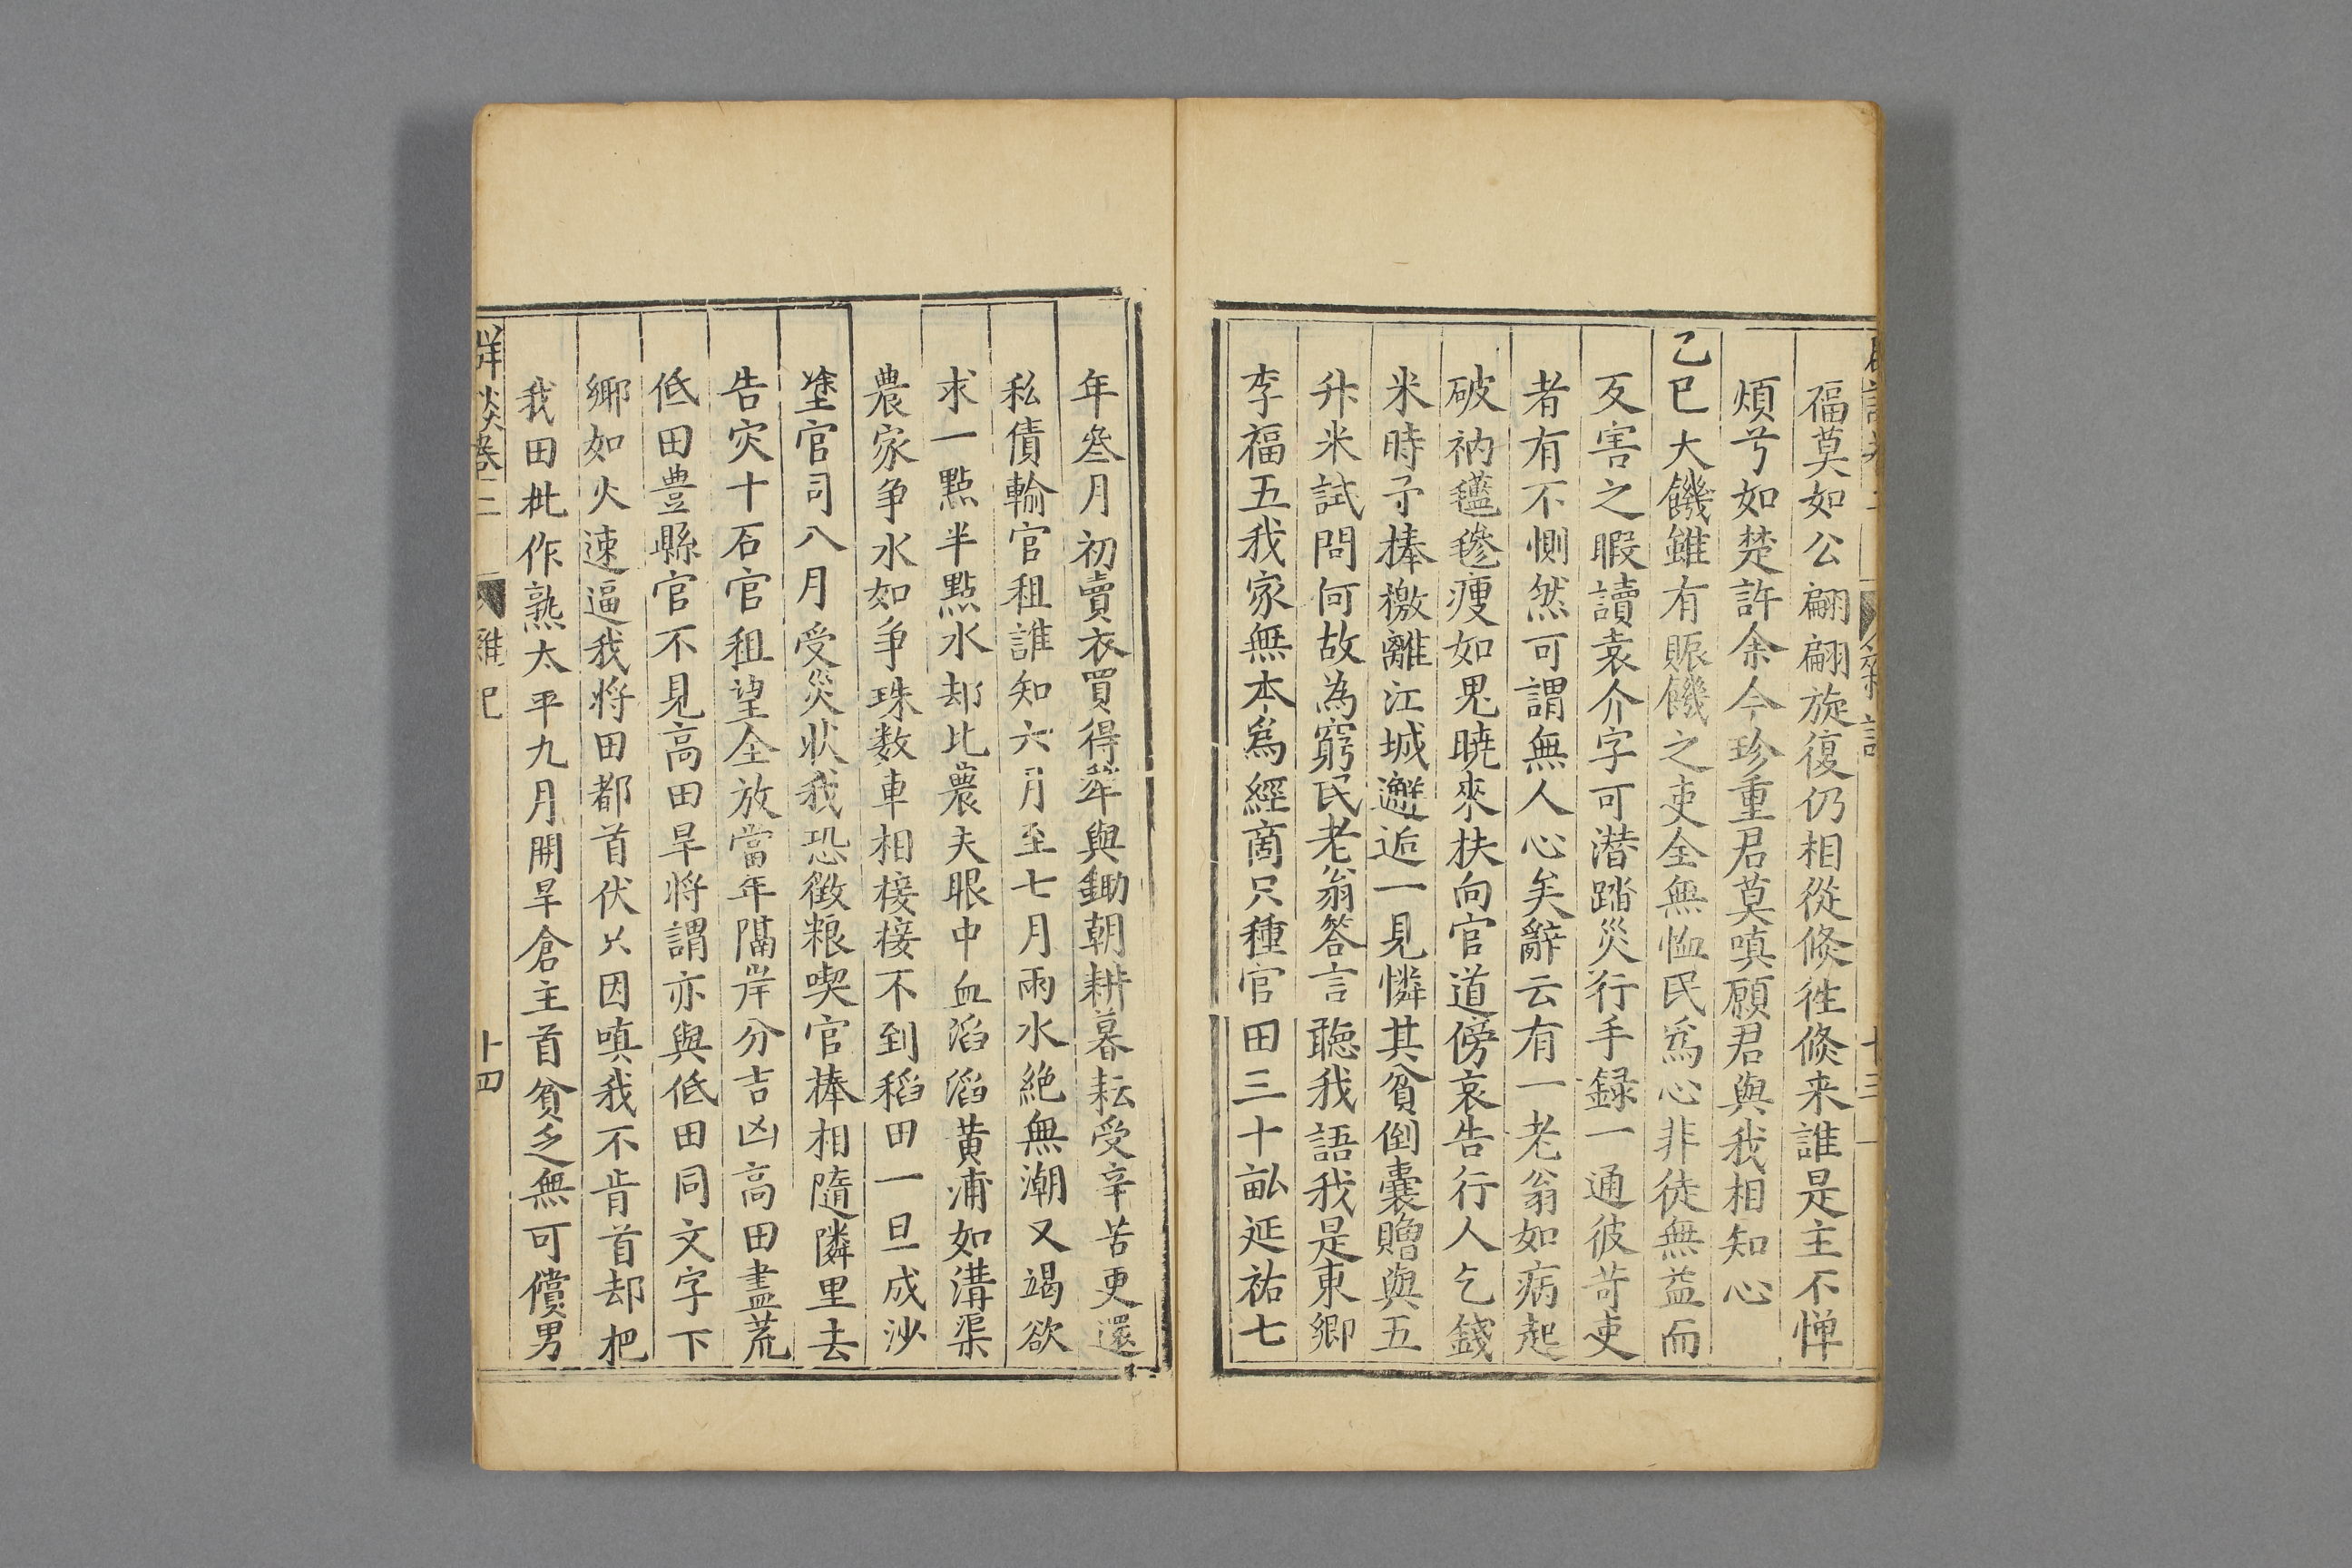 福莫如公翩翩旋復仍相從倐徃倐来誰是主不惮
煩兮如楚許余今珍重君莫嗔願君與我相知心
乙巳大饑雖有賑饑之吏全無恤民爲心非徒無益而
反害之暇讀袁介字可潜踏災行手録一通彼苛吏
者有不惻然可謂無人心矣辭云有一老翁如病起
破衲𣰦毵瘦如鬼曉來扶向官道傍哀告行人乞錢
米時予捧檄離江城邂逅一見憐其貧倒囊贈與五
升米試問何故為窮民老翁答言聼我語我是東鄉
李福五我家無本爲經商只種官田三十畆延祐七
年叁月初賣衣買得犂與鋤朝耕暮耘受辛苦更還
私債輸官租誰知六月至七月雨水絶無潮又竭欲
求一點半點水却比農夫眼中血滔滔黄浦如溝渠
農家争水如争珠数車相接接不到稻田一旦成沙
塗官司八月受災状我恐徴粮喫官棒相隨隣里去
告灾十石官租望全放當年隔岸分吉凶高田盡荒
低田豊縣官不見高田旱将謂亦與低田同文字下
鄉如火速逼我将田都首伏只因嗔我不肯首却把
我田批作熟太平九月開旱倉主首貧乏無可償男
群談卷三 雜記 十四